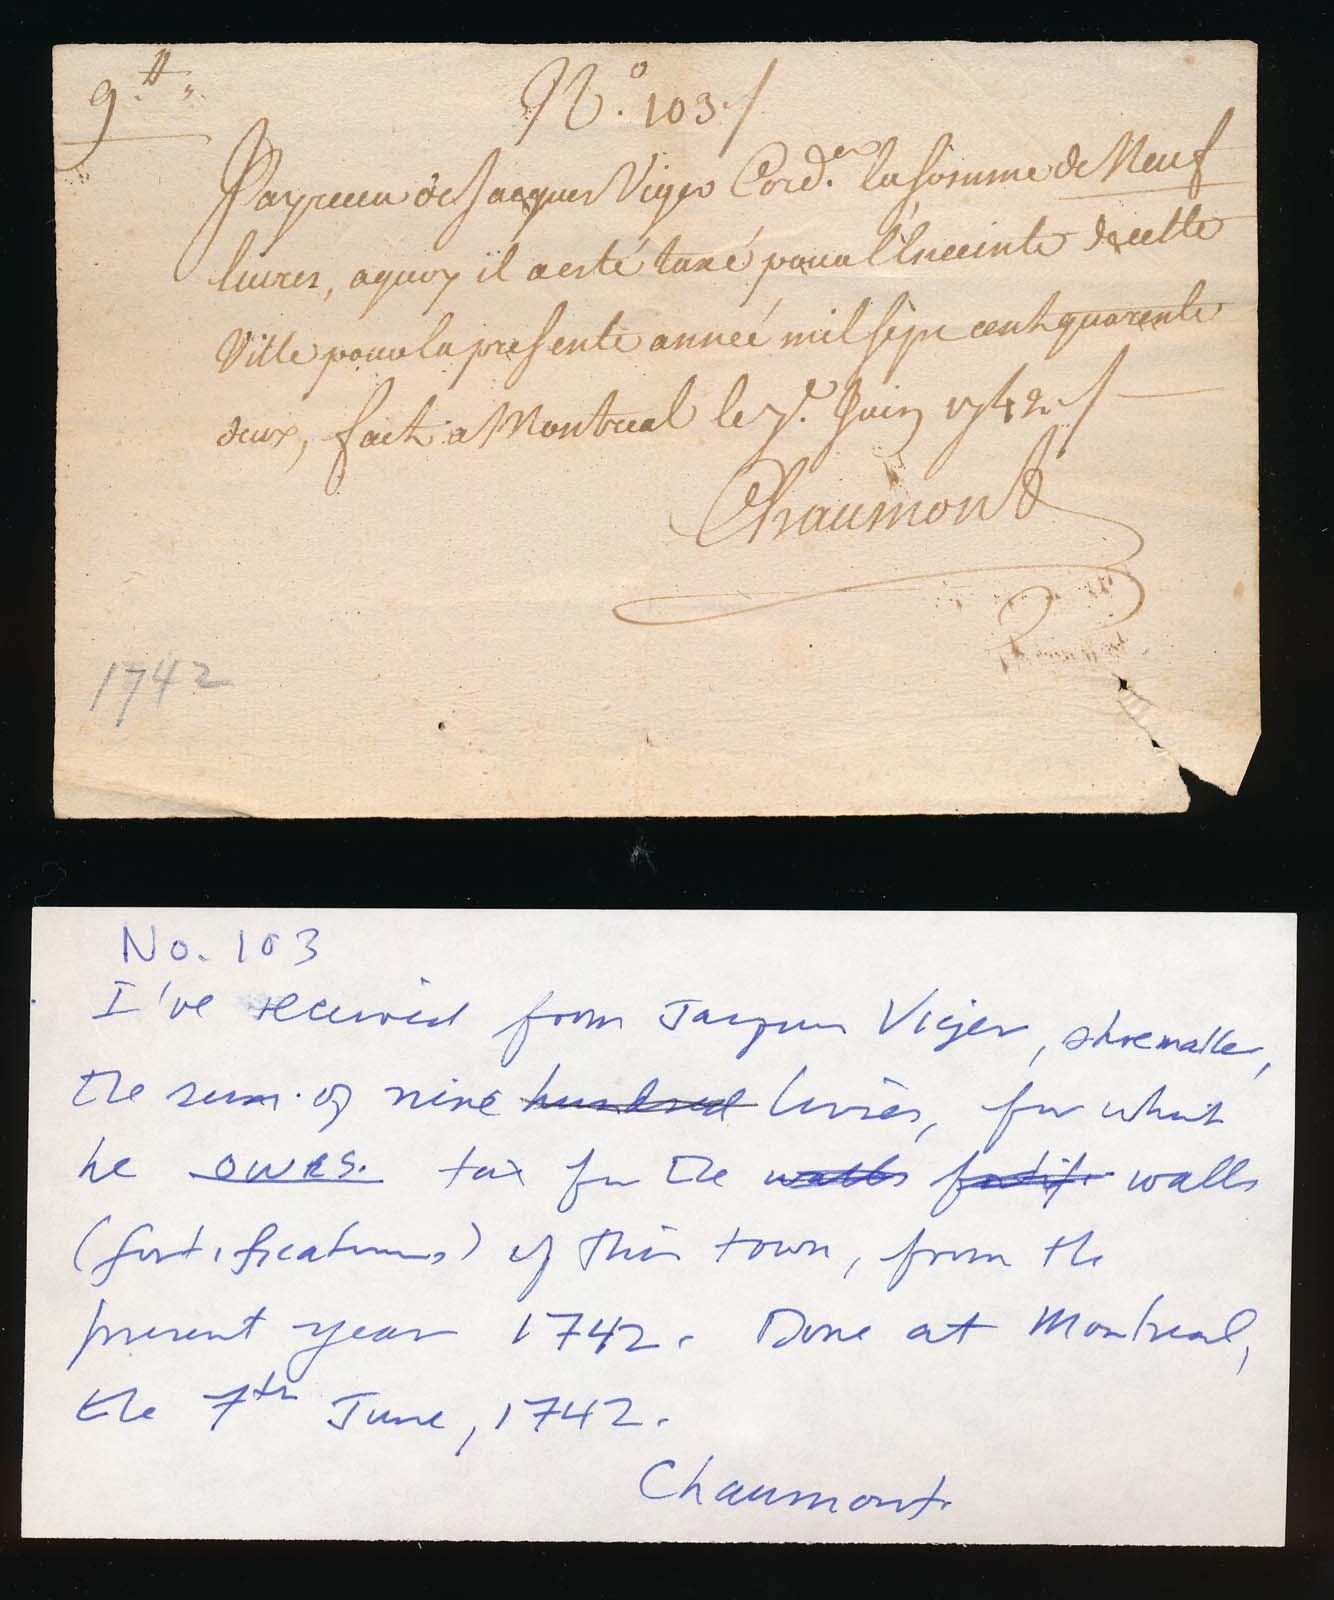 9.ᵗᵗ
N.º 103./.
J'ay receu de Jacques Viger Cord.er la somme de Neuf
livres, a quoy il a esté taxé pour l'Enceinte de cette
Ville pour la presente année mil sept cent quarente
deux, fait a Montreal le 7.e Juin 1742./.
Chaumont
1742
No. 103
I've received from Jacques Viger, shoemaker,
the sum of nine hundred livres, for what
he owes. tax for the walls fortif. walls
(fortifications) of this town, from the
present year 1742. Done at Montreal,
the 7th June, 1742.
Chaumont.